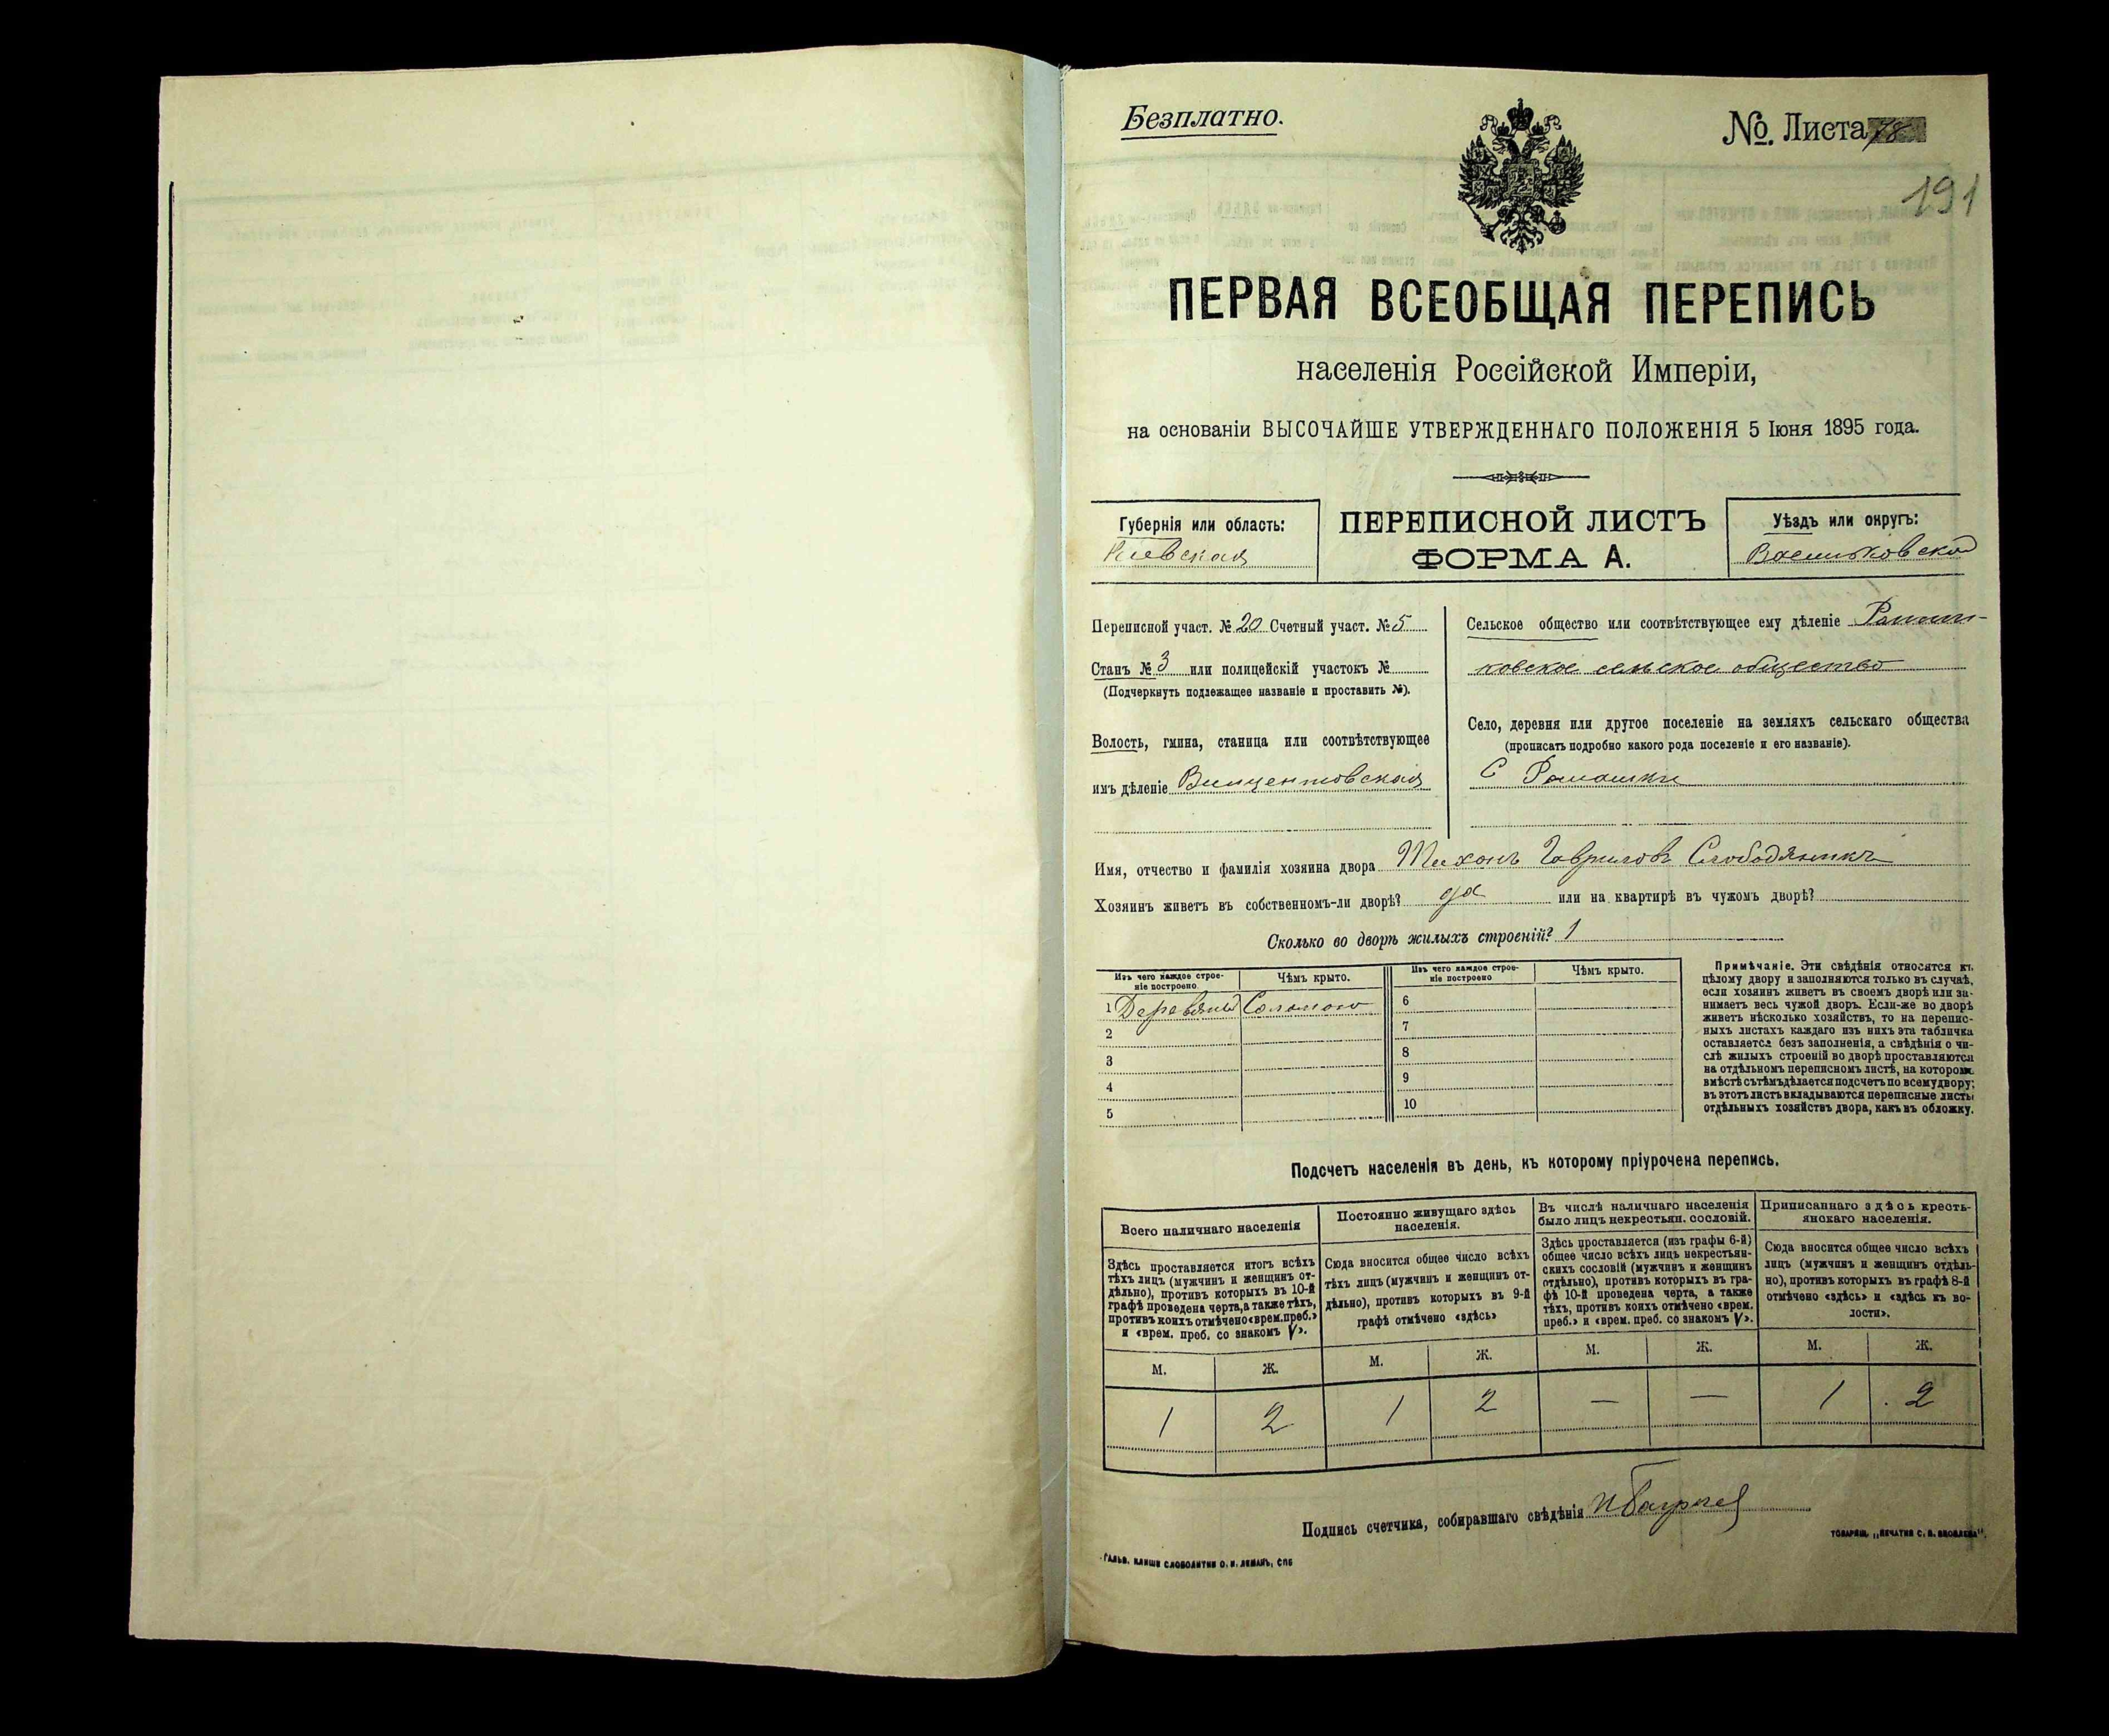 Безплатно.
№. Листа 78
191
ПЕРВАЯ ВСЕОБЩАЯ ПЕРЕПИСЬ
населенія Россійской Имперіи,
на основаніи ВЫСОЧАЙШЕ УТВЕРЖДЕННАГО ПОЛОЖЕНІЯ 5 Іюня 1895 года.
Губернія или область:
Кіевская
ПЕРЕПИСНОЙ ЛИСТЪ
ФОРМА А.
Уѣздъ или округъ:
Васильковской
Переписной участ. № 20 Счетный участ. № 5
Станъ № 3 или полицейскій участокъ №
(Подчеркнуть подлежащее названіе и проставить №).
Волость, гмина, станица или соотвѣтствующее
имъ дѣленіе Винцентовская
Сельское общество или соотвѣтствующее ему дѣленіе Ромаш-
ковское сельское общество
Село, деревня или другое поселеніе на земляхъ сельскаго общества
(прописать подробно какого рода поселеніе и его названіе).
С Ромашки
Имя, отчество и фамилія хозяина двора Тихонъ Гавриловъ Слободяникъ
Хозяинъ живетъ въ собственномъ-ли дворѣ? да или на квартирѣ въ чужомъ дворѣ?
Сколько во дворѣ жилыхъ строеній? 1
Изъ чего каждое строе-
ніе построено
Чѣмъ крыто.
Изъ чего каждое строе-
ніе построено
Чѣмъ крыто.
1 Деревяный Соломою
2
3
4
5
6
7
8
9
10
Примѣчаніе. Эти свѣдѣнія относятся къ
цѣлому двору и заполняются только въ случаѣ,
если хозяинъ живетъ въ своемъ дворѣ или за-
нимаетъ весь чужой дворъ. Если-же во дворѣ
живетъ нѣсколько хозяйствъ, то на перепис-
ныхъ листахъ каждаго изъ нихъ эта табличка
оставляется безъ заполненія, а свѣдѣнія о чи-
слѣ жилыхъ строеній во дворѣ проставляются
на отдѣльномъ переписномъ листѣ, на которомъ
вмѣстѣ съ тѣмъ дѣлается подсчетъ по всему двору;
въ этотъ листъ вкладываются переписные листы
отдѣльныхъ хозяйствъ двора, какъ въ обложку.
Подсчетъ населенія въ день, къ которому пріурочена перепись.
Всего наличнаго населенія
Здѣсь проставляется итогъ всѣхъ
тѣхъ лицъ (мужчинъ и женщинъ от-
дѣльно), противъ которыхъ въ 10-й
графѣ проведена черта, а также тѣхъ,
противъ коихъ отмѣчено «врем. преб.»
и «врем. преб. со знакомъ V».
Постоянно живущаго здѣсь
населенія.
Сюда вносится общее число всѣхъ
тѣхъ лицъ (мужчинъ и женщинъ от-
дѣльно), противъ которыхъ въ 9-й
графѣ отмѣчено «здѣсь»
Въ числѣ наличнаго населенія
было лицъ некрестьян. сословій.
Здѣсь проставляется (изъ графы 6-й)
общее число всѣхъ лицъ некрестьян-
скихъ сословій (мужчинъ и женщинъ
отдѣльно), противъ которыхъ въ гра-
фѣ 10-й проведена черта, а также
тѣхъ, противъ коихъ отмѣчено «врем.
преб.» и «врем. преб. со знакомъ V».
Приписаннаго здѣсь кресть-
янскаго населенія.
Сюда вносится общее число всѣхъ
лицъ (мужчинъ и женщинъ отдѣль-
но), противъ которыхъ въ графѣ 8-й
отмѣчено «здѣсь» и «здѣсь къ во-
лости».
М. Ж. М. Ж. М. Ж. М. Ж.
1 2 1 2 — — 1 2
Подпись счетчика, собиравшаго свѣдѣнія
ГАЛЬВ. КЛИШЕ СЛОВОЛИТНИ О. И. ЛЕМАНЪ, СПБ
ТОВАРИЩ. „ПЕЧАТНЯ С. П. ЯКОВЛЕВА".